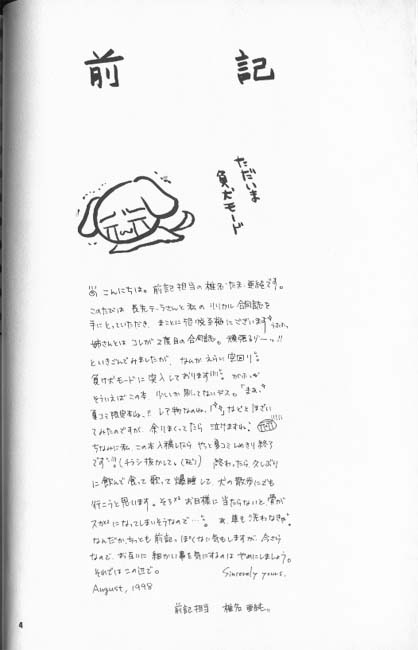 前記
ただいま
負犬モード
こんにちは。前記担当の椎名・たま・亜純です。
このたびは 長先テーラさんと私の リリカル合同誌を
手にとっていただき、まことに
姉さんとは コレが2度目の合同誌。頑張るゾーッ!!
といきごんでみましたが、なんかえらい空回り
負け犬モードに突入しております
そういえばこの本、少ししか刷してないデス。「まぁ、
夏コミ限定本なの、レア物なのね、」などとほざいて
みたのですが、余りまくってたら泣けますね。
ちなみに私、この本入稿したら やっと夏コミしめきり終了
です (チラシ抜かして。) 終わったら 久しぶり
に飲んで食って歌って爆睡して、犬の散歩にでも
行こうと思います。そろそろお日様に当たらないと骨が
スカスカになってしまいそうなので…。あ、車も洗わなきゃ。
なんだか、ちっとも前記っぽくない気もしますが、今さら
なので、お互いに細かい事を気にするのは やめにしましょう。
それではこの辺で。 Sincerely yours.
August, 1998
前記担当 椎名 亜純。
4